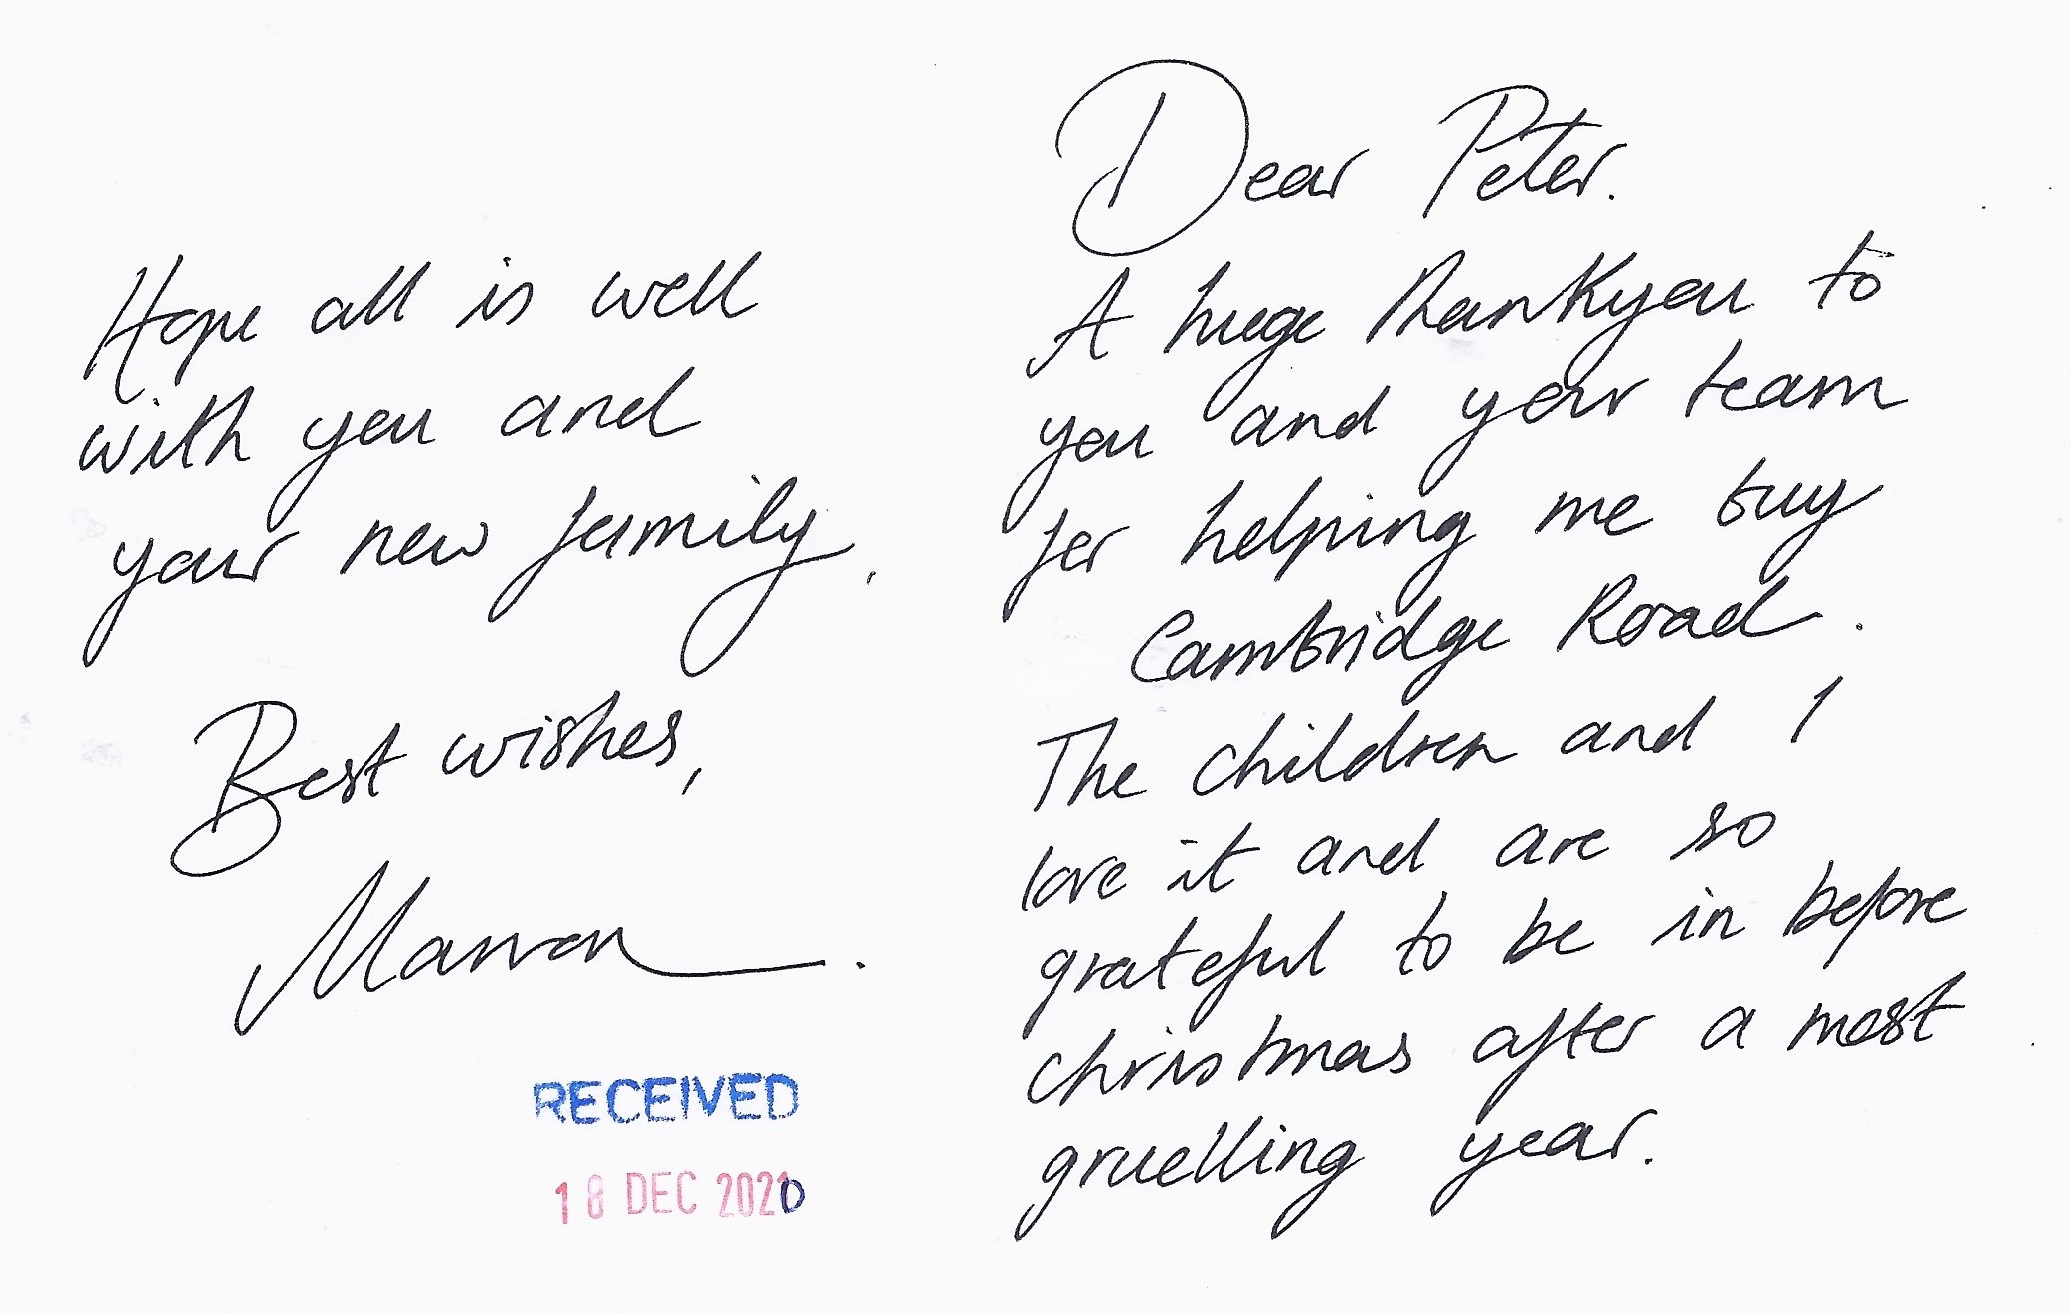 Dear Peter.
A huge thankyou to
you and your team
for helping me buy
Cambridge Road.
The children and I
love it and are so
grateful to be in before
christmas after a most
gruelling year.
Hope all is well
with you and
your new family.
Best wishes,
RECEIVED
18 DEC 2020